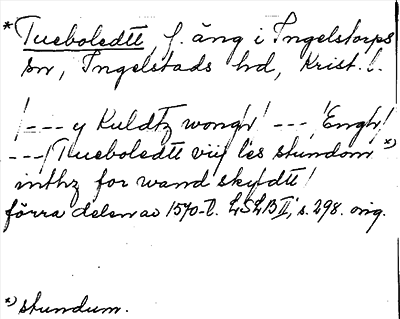 *Tueboledtt, f. äng i Ingelstorps
sn, Ingelstads hd, Krist. l.
/--- y Kuldtz wongh/ --- /Engh/
---/Tueboledtt viij les stundom *)
inthz for wand skyldtt/
förra delen av 1570-t. LSLB II, s. 298. orig.
*) stundum.